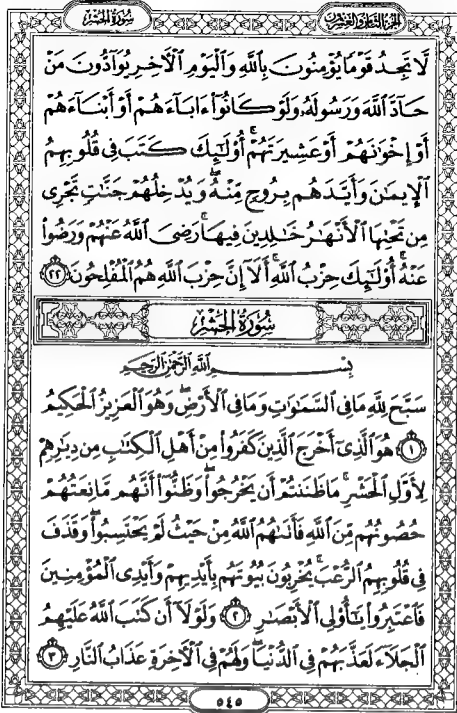 سُورَةُ الحَشْرِ الجُزْءُ الثَّامِنُ وَالعِشْرُونَ
لَّا تَجِدُ قَوْمًا يُؤْمِنُونَ بِٱللَّهِ وَٱلْيَوْمِ ٱلْءَاخِرِ يُوَآدُّونَ مَنْ
حَآدَّ ٱللَّهَ وَرَسُولَهُۥ وَلَوْ كَانُوٓا۟ ءَابَآءَهُمْ أَوْ أَبْنَآءَهُمْ
أَوْ إِخْوَٰنَهُمْ أَوْ عَشِيرَتَهُمْ ۚ أُو۟لَٰٓئِكَ كَتَبَ فِى قُلُوبِهِمُ
ٱلْإِيمَٰنَ وَأَيَّدَهُم بِرُوحٍ مِّنْهُ ۖ وَيُدْخِلُهُمْ جَنَّٰتٍ تَجْرِى
مِن تَحْتِهَا ٱلْأَنْهَٰرُ خَٰلِدِينَ فِيهَا ۚ رَضِىَ ٱللَّهُ عَنْهُمْ وَرَضُوا۟
عَنْهُ ۚ أُو۟لَٰٓئِكَ حِزْبُ ٱللَّهِ ۚ أَلَآ إِنَّ حِزْبَ ٱللَّهِ هُمُ ٱلْمُفْلِحُونَ ٢٢
سُورَةُ الحَشْرِ
بِسْمِ ٱللَّهِ ٱلرَّحْمَٰنِ ٱلرَّحِيمِ
سَبَّحَ لِلَّهِ مَا فِى ٱلسَّمَٰوَٰتِ وَمَا فِى ٱلْأَرْضِ ۖ وَهُوَ ٱلْعَزِيزُ ٱلْحَكِيمُ
١ هُوَ ٱلَّذِىٓ أَخْرَجَ ٱلَّذِينَ كَفَرُوا۟ مِنْ أَهْلِ ٱلْكِتَٰبِ مِن دِيَٰرِهِمْ
لِأَوَّلِ ٱلْحَشْرِ ۚ مَا ظَنَنتُمْ أَن يَخْرُجُوا۟ ۖ وَظَنُّوٓا۟ أَنَّهُم مَّانِعَتُهُمْ
حُصُونُهُم مِّنَ ٱللَّهِ فَأَتَىٰهُمُ ٱللَّهُ مِنْ حَيْثُ لَمْ يَحْتَسِبُوا۟ ۖ وَقَذَفَ
فِى قُلُوبِهِمُ ٱلرُّعْبَ ۚ يُخْرِبُونَ بُيُوتَهُم بِأَيْدِيهِمْ وَأَيْدِى ٱلْمُؤْمِنِينَ
فَٱعْتَبِرُوا۟ يَٰٓأُو۟لِى ٱلْأَبْصَٰرِ ٢ وَلَوْلَآ أَن كَتَبَ ٱللَّهُ عَلَيْهِمُ
ٱلْجَلَآءَ لَعَذَّبَهُمْ فِى ٱلدُّنْيَا ۖ وَلَهُمْ فِى ٱلْءَاخِرَةِ عَذَابُ ٱلنَّارِ ٣
٥٤٥